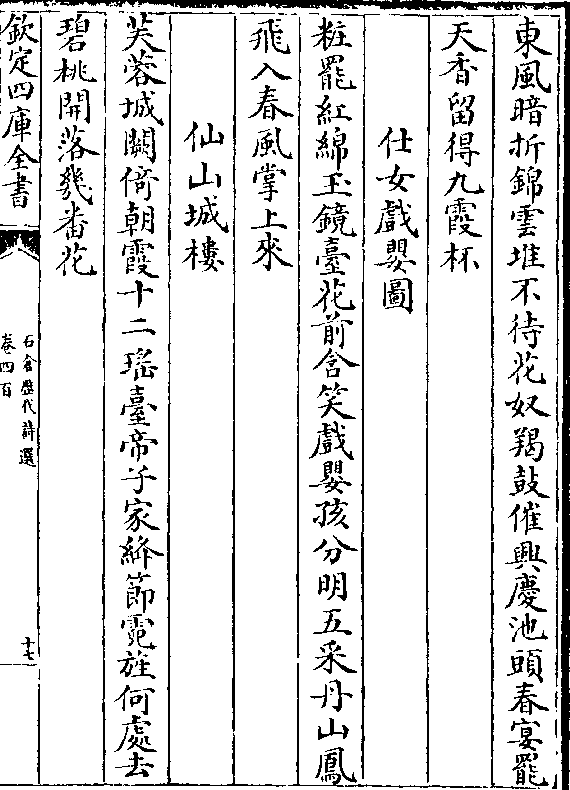 東風暗折錦雲堆不待花奴羯鼓催興慶池頭春宴罷
天香留得九霞杯
仕女戲嬰圖
粧罷紅綿玉鏡臺花前含笑戲嬰孩分明五采丹山鳳
飛入春風掌上來
仙山城樓
芙蓉城闕倚朝霞十二瑤臺帝子家絳節霓旌何處去
碧桃開落幾番花
欽定四庫全書
石倉歷代詩選
卷四百
十七